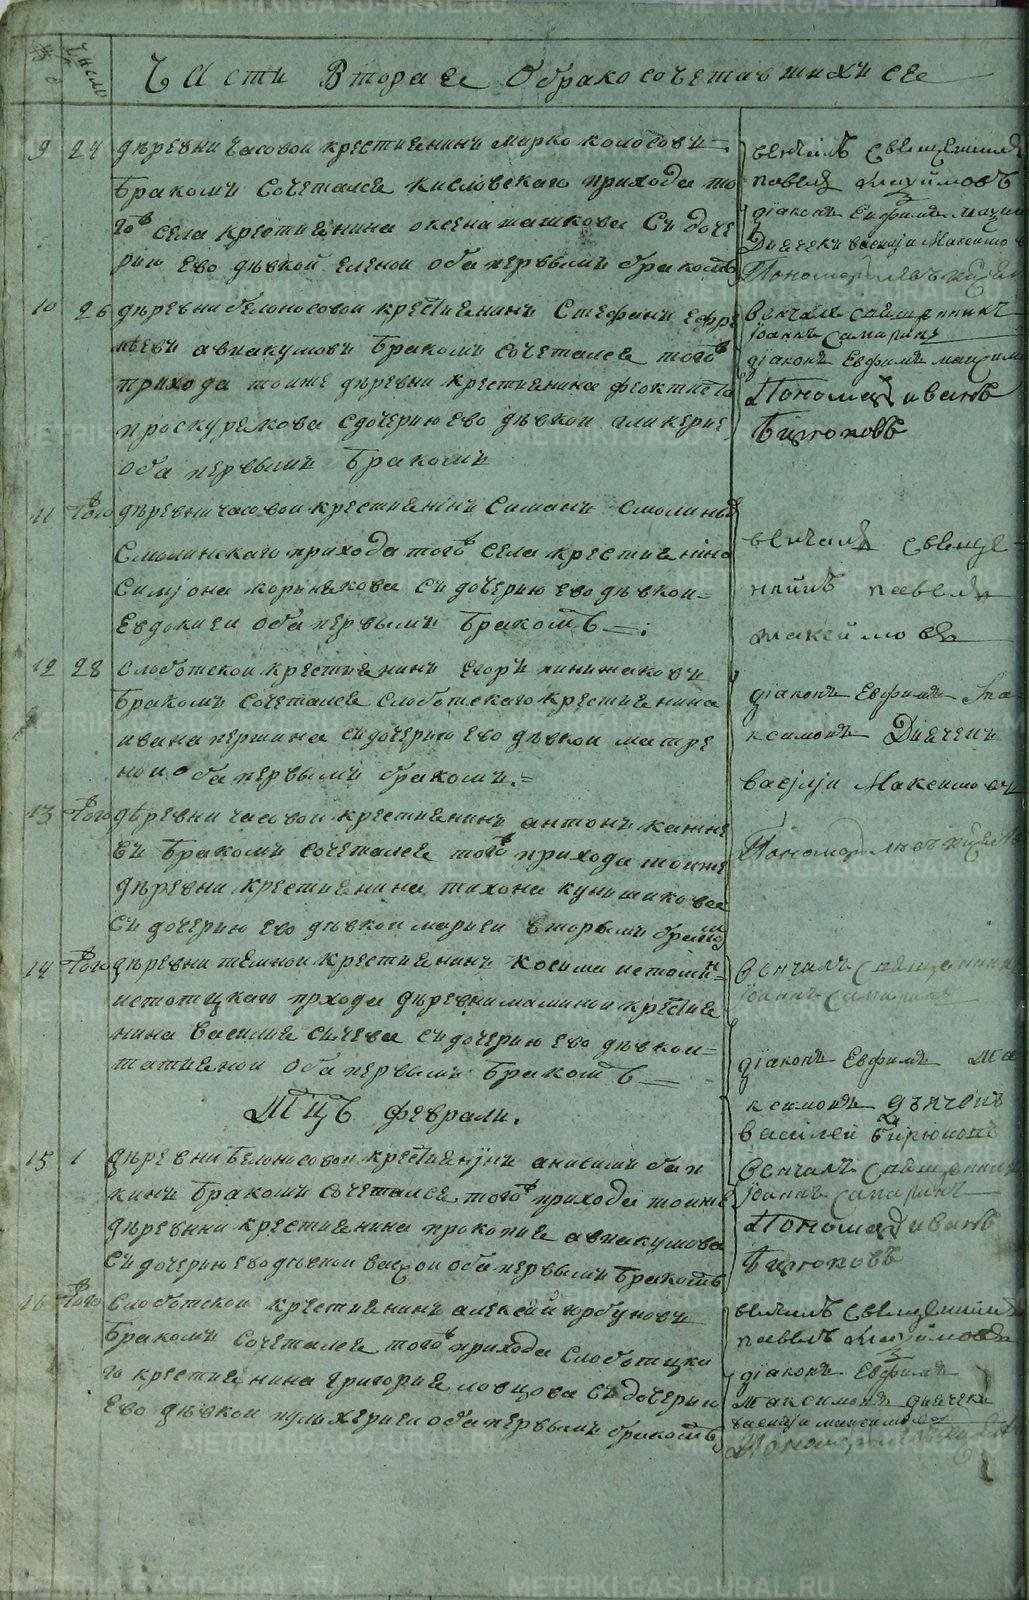 Части Вторая О бракосочетавшихся
число
9 24 деревни часовой крестиянинъ марко колосовъ
бракомъ сочетался кисловскаго прихода то
гоже села крестиянина съ доче
рию ево девкой еленой оба первымъ бракомъ
венчалъ священникъ
павелъ максимовъ
дiаконъ Евфимъ
Дiячекъ василiй Максимо
Пономарь
10 26 деревни белоносовой крестиянинъ Стефанъ Ефре
мьевъ аввакумовъ бракомъ сочетался тогоже
прихода тоиже деревни крестиянина феоктиста
проскурекова сдочерию ево девкой гликерие
оба первымъ бракомъ
венчалъ священникъ
Iоаннъ самаринъ
дiаконъ Евфимъ максимо
Пономарь иванъ
Бирюковъ
11 тогоже деревни часовой крестиянiнъ Симанъ Смолинъ
Смолинскаго прихода тогоже села крестиянiна
Симiона съ дочерию ево девкой
Евдокией оба первымъ бракомъ
венчалъ свяще
нникъ павелъ
максимовъ
12 28 слоботской крестиянинъ егоръ
бракомъ сочетался слоботскаго крестиянина
ивана першина съ дочерию ево девкой матре
ной оба первымъ бракомъ
дiаконъ Евфимъ Ма
ксимовъ Дiячекъ
василiй Максимовъ
13 тогоже деревни часовой крестиянинъ антонъ
въ бракомъ сочетался тогоже прихода тоиже
деревни крестиянина тихона
съ дочерию ево девкой марией вторымъ бракомъ
Пономарь
14 тогоже деревни темной крестиянинъ косьма истомин
истоцкаго прхода деревни маминой крестия
нина василия сычева съ дочерию ево девкой
татияной оба первымъ бракомъ
венчалъ священникъ
Iоаннъ самаринъ
дiаконъ Евфимъ Ма
ксимовъ дьячекъ
василей Бирюковъ
Мцъ февраль.
15 1 деревни белоносовой крестиянiнъ анисимъ бан
кинъ бракомъ сочетался тогоже прихода тоиже
деревнни крестиянина прокопия аввакумова
съ дочерию ево девкой васой оба первымъ бракомъ
венчалъ священникъ
Iоаннъ самаринъ
Пономарь иванъ
Бирюковъ
16 тогоже слоботской крестиянинъ алексей горбуновъ
бракомъ сочетался тогоже прихода слоботцка
го крестиянина григория ловцова съ дочерию
ево девкой пулхерией оба первымъ бракомъ
венчалъ священникъ
павелъ максимовъ
дiаконъ Евфимъ
Максимовъ дiячекъ
василiй максимовъ
Пономарь
METRIKI.GASO-URAL.RU